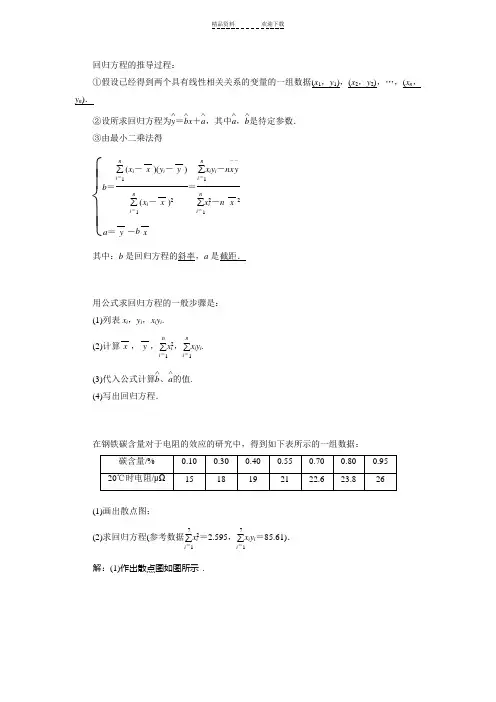 精品资料 欢迎下载
回归方程的推导过程:
①假设已经得到两个具有线性相关关系的变量的一组数据(x₁,y₁),(x₂,y₂),…,(xₙ,
yₙ).
②设所求回归方程为ŷ=b̂x+â,其中â,b̂是待定参数.
③由最小二乘法得
{ b=∑ⁿᵢ₌₁(xᵢ-x̄)(yᵢ-ȳ)/∑ⁿᵢ₌₁(xᵢ-x̄)²=(∑ⁿᵢ₌₁xᵢyᵢ-nx̄ȳ)/(∑ⁿᵢ₌₁xᵢ²-nx̄²)
a=ȳ-bx̄
其中:b是回归方程的斜率,a是截距.
用公式求回归方程的一般步骤是:
(1)列表xᵢ,yᵢ,xᵢyᵢ.
(2)计算x̄,ȳ,∑ⁿᵢ₌₁xᵢ²,∑ⁿᵢ₌₁xᵢyᵢ.
(3)代入公式计算b̂、â的值.
(4)写出回归方程.
在钢铁碳含量对于电阻的效应的研究中,得到如下表所示的一组数据:
碳含量/% 0.10 0.30 0.40 0.55 0.70 0.80 0.95
20℃时电阻/μΩ 15 18 19 21 22.6 23.8 26
(1)画出散点图;
(2)求回归方程(参考数据∑⁷ᵢ₌₁xᵢ²=2.595,∑⁷ᵢ₌₁xᵢyᵢ=85.61).
解:(1)作出散点图如图所示.